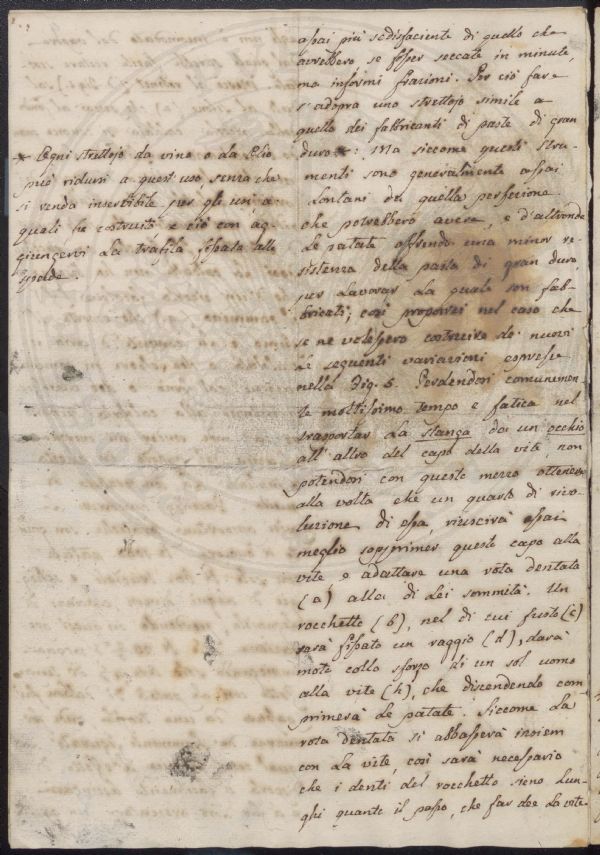 assai più sodisfaciente di quello che
avrebbero se fosser seccate in minute,
ma informi frazioni. Per ciò fare
s'adopra uno strettojo simile a
quello dei fabbricanti di paste di gran
duro*: Ma siccome questi stru-
menti sono generalmente assai
lontani da quella perfezione
che potrebbero avere, e d'altronde
le patate offrendo una minor re-
sistenza della pasta di gran duro,
per lavorar la quale son fab-
bricati; così proporrei nel caso che
se ne volessero costruire de' nuovi
le seguenti variazioni espresse
nella Fig. 5. Perdendosi comunemen-
te moltissimo tempo e fatica nel
trasportar la stanga da un occhio
all'altro del capo della vite, non
potendosi con questo mezzo ottenere
alla volta che un quarto di rivo-
luzione di essa, riuscirà assai
meglio sopprimer questo capo alla
vite e adattare una rota dentata
(a) alla di lei sommità. Un
rocchetto (b), nel di cui fusto (c)
sarà fissato un raggio (d), darà
moto collo sforzo di un sol uomo
alla vite (h), che discendendo com
primerà le patate. Siccome la
rota dentata si abbasserà insiem
con la vite, così sarà necessario
che i denti del rocchetto sieno lun-
ghi quanto il passo, che far dee la vite
* Ogni strettojo da vino o da olio
può ridursi a quest'uso, senza che
si renda inservibile per gli usi, a
quali fu costruito e ciò con ag-
giungervi la trafila, fissata alle
sponde.